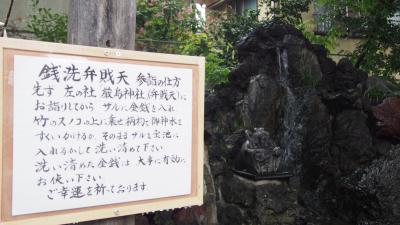 銭洗弁戝天 参詣の仕方
先ず 左の社 厳島神社(弁戝天)に
お詣りしてから ザルに金銭を入れ
竹のスノコの上に乗せ柄杓で御神水を
すくいかけるか そのままザルを宝池に
入れるかして 洗い清めて下さい
洗い清めた金銭は 大事に有効に
お使い下さい
ご幸運を祈っております